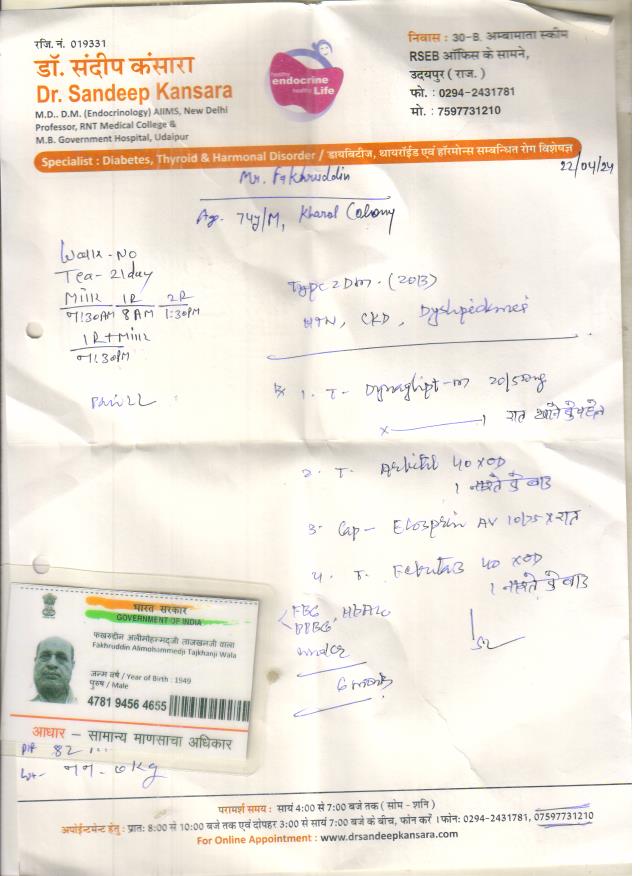 रजि. नं. 019331
डॉ. संदीप कंसारा
Dr. Sandeep Kansara
M.D.. D.M. (Endocrinology) AIIMS, New Delhi
Professor, RNT Medical College &
M.B. Government Hospital, Udaipur
healthy
endocrine
healthy Life
निवास : 30-B. अम्बामाता स्कीम
RSEB ऑफिस के सामने,
उदयपुर ( राज. )
फो. : 0294-2431781
मो. : 7597731210
Specialist : Diabetes, Thyroid & Harmonal Disorder / डायबिटीज, थायरॉईड एवं हॉरमोन्स सम्बन्धित रोग विशेषज्ञ
22/04/24
Mr. Fakhruddin
Age. 74y/M, Kharol Colony
Walk - NO
Tea - 2/day
Milk 1R 2R
7:30AM 8AM 1:30PM
1R + Milk
7:30PM
Type 2 DM. (2013)
HTN, CKD,
Rx 1. T- Dynaglipt-m 20/500mg
x 1 रात खाने से पहले
2. T. 40 x OD
1 नाश्ते के बाद
3. Cap - Ecosprin AV 10/75 x रात
4. T. 40 x OD
1 नाश्ते के बाद
FBG, HBA1C
PPBG,
भारत सरकार
GOVERNMENT OF INDIA
फखरुद्दीन अलीमोहम्मदजी ताजखनजी वाला
Fakhruddin Alimohammedji Tajkhanji Wala
जन्म वर्ष / Year of Birth : 1949
पुरुष / Male
4781 9456 4655
आधार – सामान्य माणसाचा अधिकार
82
Wt - kg
परामर्श समय : सायं 4:00 से 7:00 बजे तक ( सोम - शनि )
अपोईन्टमेन्ट हेतु : प्रात: 8:00 से 10:00 बजे तक एवं दोपहर 3:00 से सायं 7:00 बजे के बीच, फोन करें । फोन: 0294-2431781, 07597731210
For Online Appointment : www.drsandeepkansara.com